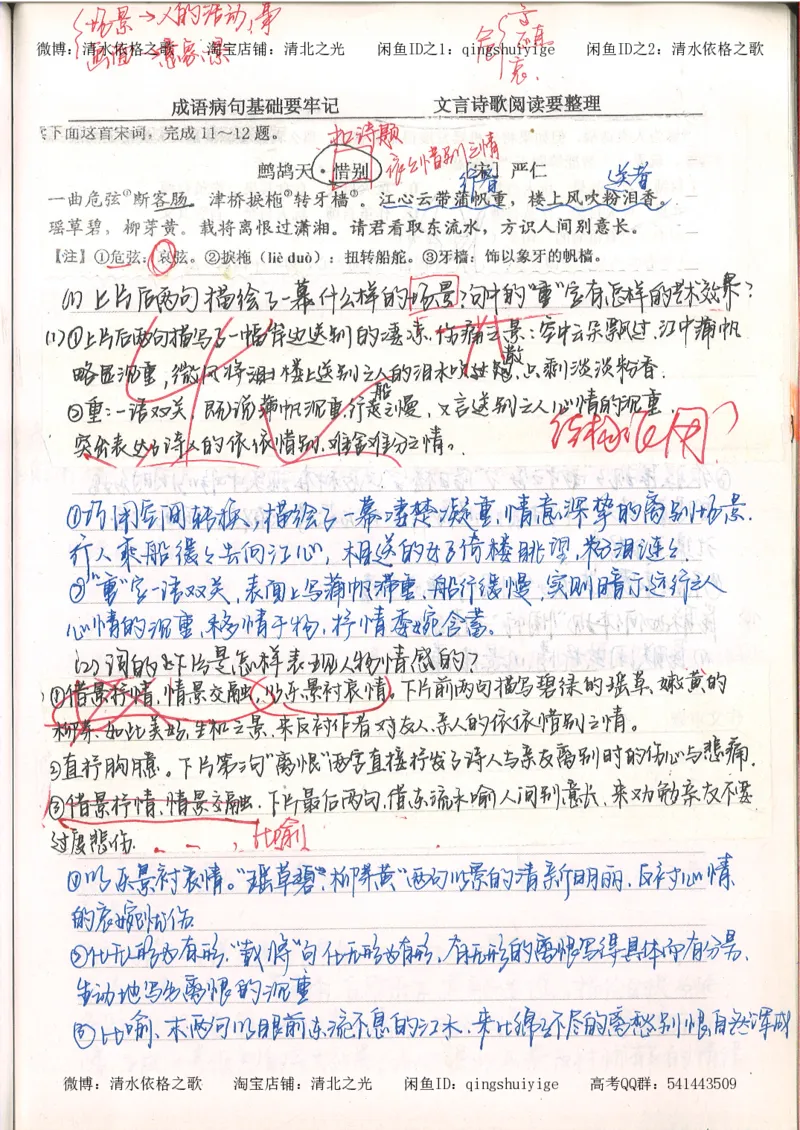 场景→人的活动,事
画面→意象,景
微博：清水依格之歌 淘宝店铺：清北之光 闲鱼ID之1：qingshuiyige 闲鱼ID之2：清水依格之歌
成语病句基础要牢记 文言诗歌阅读要整理
下面这首宋词，完成11～12题。
扣诗题
依依惜别之情
鹧鸪天·惜别 [宋] 严仁
行者 送者
一曲危弦①断客肠。津桥捩柁②转牙樯③。江心云带蒲帆重，楼上风吹粉泪香。
瑶草碧，柳芽黄。载将离恨过潇湘。请君看取东流水，方识人间别意长。
【注】①危弦：哀弦。②捩拖（liè duò）：扭转船舵。③牙樯：饰以象牙的帆樯。
(1)上片后两句描绘了一幕什么样的场景？句中的“重”字有怎样的艺术效果？
(1)①上片后两句描写了一幅岸边送别的凄凉、伤痛之景：空中云朵飘过，江中蒲帆
略显沉重，微风将楼上送别之人的泪水吹散，只剩淡淡粉香。
②重：一语双关，既说蒲帆沉重，行船之慢，又言送别之人心情的沉重，
突出表达了诗人的依依惜别、难舍难分之情。
结构作用？
①巧用空间转换，描绘了一幕凄楚凝重、情意深挚的离别场景.
行人乘船缓缓去向江心，相送的女子倚楼眺望，粉泪涟涟.
②“重”字一语双关，表面上写蒲帆滞重，船行缓慢，实则暗示远行之人
心情的沉重，移情于物，抒情委婉含蓄。
(2)词的下片是怎样表现人物情感的？
①借景抒情，情景交融，以乐景衬哀情。下片前两句描写碧绿的瑶草、嫩黄的
柳芽，如此美好、生机之景，来反衬作者对友人、亲人的依依惜别之情。
②直抒胸臆。下片第三句“离恨”两字直接抒发了诗人与亲友离别时的伤心与悲痛.
③借景抒情，情景交融. 下片最后两句，借东流水喻人间别意长，来劝勉亲友不要
过度悲伤.
比喻
①以乐景衬哀情。“瑶草碧”，“柳芽黄”两句以景的清新明丽，反衬心情
的哀婉忧伤
②化无形为有形，“载将”句化无形为有形，有无形的离恨写得具体而有分量、
生动地写出离恨的沉重
③比喻、末两句以眼前东流不息的江水，来比绵绵不尽的离愁别恨，自然浑成
微博：清水依格之歌 淘宝店铺：清北之光 闲鱼ID：qingshuiyige 高考QQ群：541443509